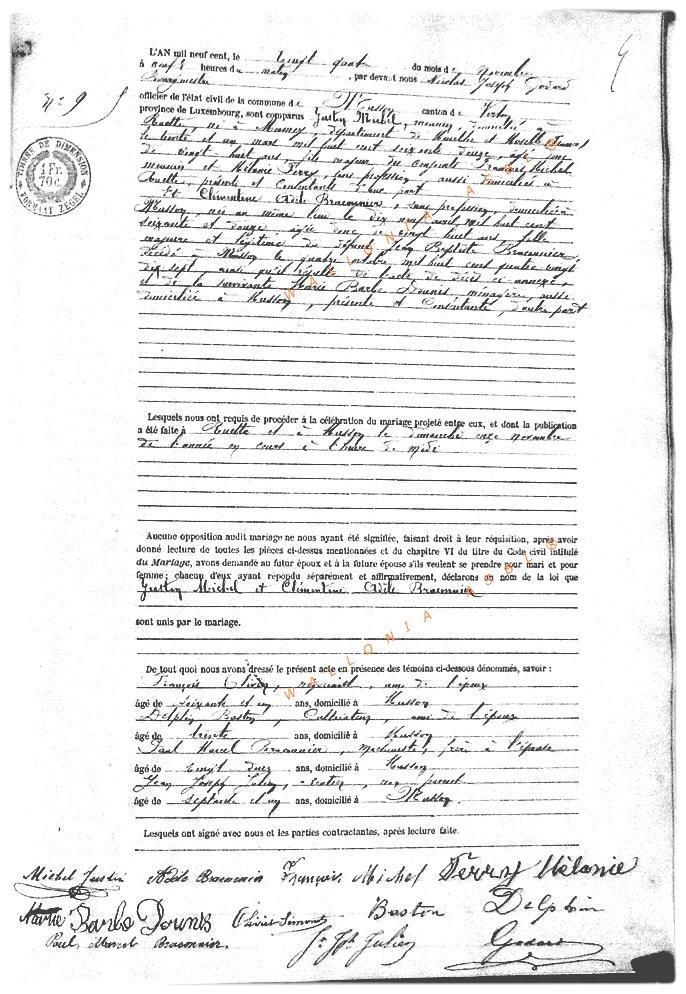 N° 9
TIMBRE DE DIMENSION
1 Fr. 70c
FORMAAT ZEGEL
L'AN mil neuf cent, le vingt quatre du mois de Novembre
à neuf heures du matin, par devant nous Nicolas Joseph Godard
Bourgmestre
officier de l'état civil de la commune de Musson canton de Virton
province de Luxembourg, sont comparus Justin Michel, domicilié à
Ruette, né à département de Meurthe et Moselle France
le trente et un mars mil huit cent soixante douze, âgé donc
de vingt huit ans, fils majeur de François Michel
et Mélanie Ferry, sans profession, aussi domiciliés à
Ruette, présents et consentants d'une part
Et Clémentine Adèle Braconnier, sans profession, domiciliée à
Musson, née au même lieu le dix neuf avril mil huit cent
soixante et douze, âgée donc de vingt huit ans, fille
majeure et légitime du défunt Jean Baptiste Braconnier,
décédé à Musson le quatre octobre mil huit cent quatre vingt
dix sept, ainsi qu'il résulte de l'acte de décès ci annexé,
et de la survivante Marie Barbe Dounis, ménagère, aussi
domiciliée à Musson, présente et consentante, d'autre part
Lesquels nous ont requis de procéder à la célébration du mariage projeté entre eux, et dont la publication
a été faite à Ruette et à Musson le dimanche onze novembre
de l'année en cours à l'heure de midi
Aucune opposition audit mariage ne nous ayant été signifiée, faisant droit à leur réquisition, après avoir
donné lecture de toutes les pièces ci-dessus mentionnées et du chapitre VI du titre du Code civil intitulé
du Mariage, avons demandé au futur époux et à la future épouse s'ils veulent se prendre pour mari et pour
femme; chacun d'eux ayant répondu séparément et affirmativement, déclarons au nom de la loi que
Justin Michel et Clémentine Adèle Braconnier
sont unis par le mariage.
De tout quoi nous avons dressé le présent acte en présence des témoins ci-dessous dénommés, savoir :
François Olivier, ami de l'époux
âgé de soixante et un ans, domicilié à Musson
Delphin Baston, Cultivateur, ami de l'époux
âgé de trente ans, domicilié à Musson
Paul Marcel Braconnier, machiniste, frère à l'épouse
âgé de vingt deux ans, domicilié à Musson
Jean Joseph Julien, rentier, non parent
âgé de septante et un ans, domicilié à Musson
Lesquels ont signé avec nous et les parties contractantes, après lecture faite.
Michel Justin Adèle Braconnier François Michel Ferry Mélanie
Marie Barbe Dounis Olivier Baston Delphin
Paul Marcel Braconnier Jn Jph Julien Godard
WALLONIA ASBL ©
WALLONIA ASBL ©